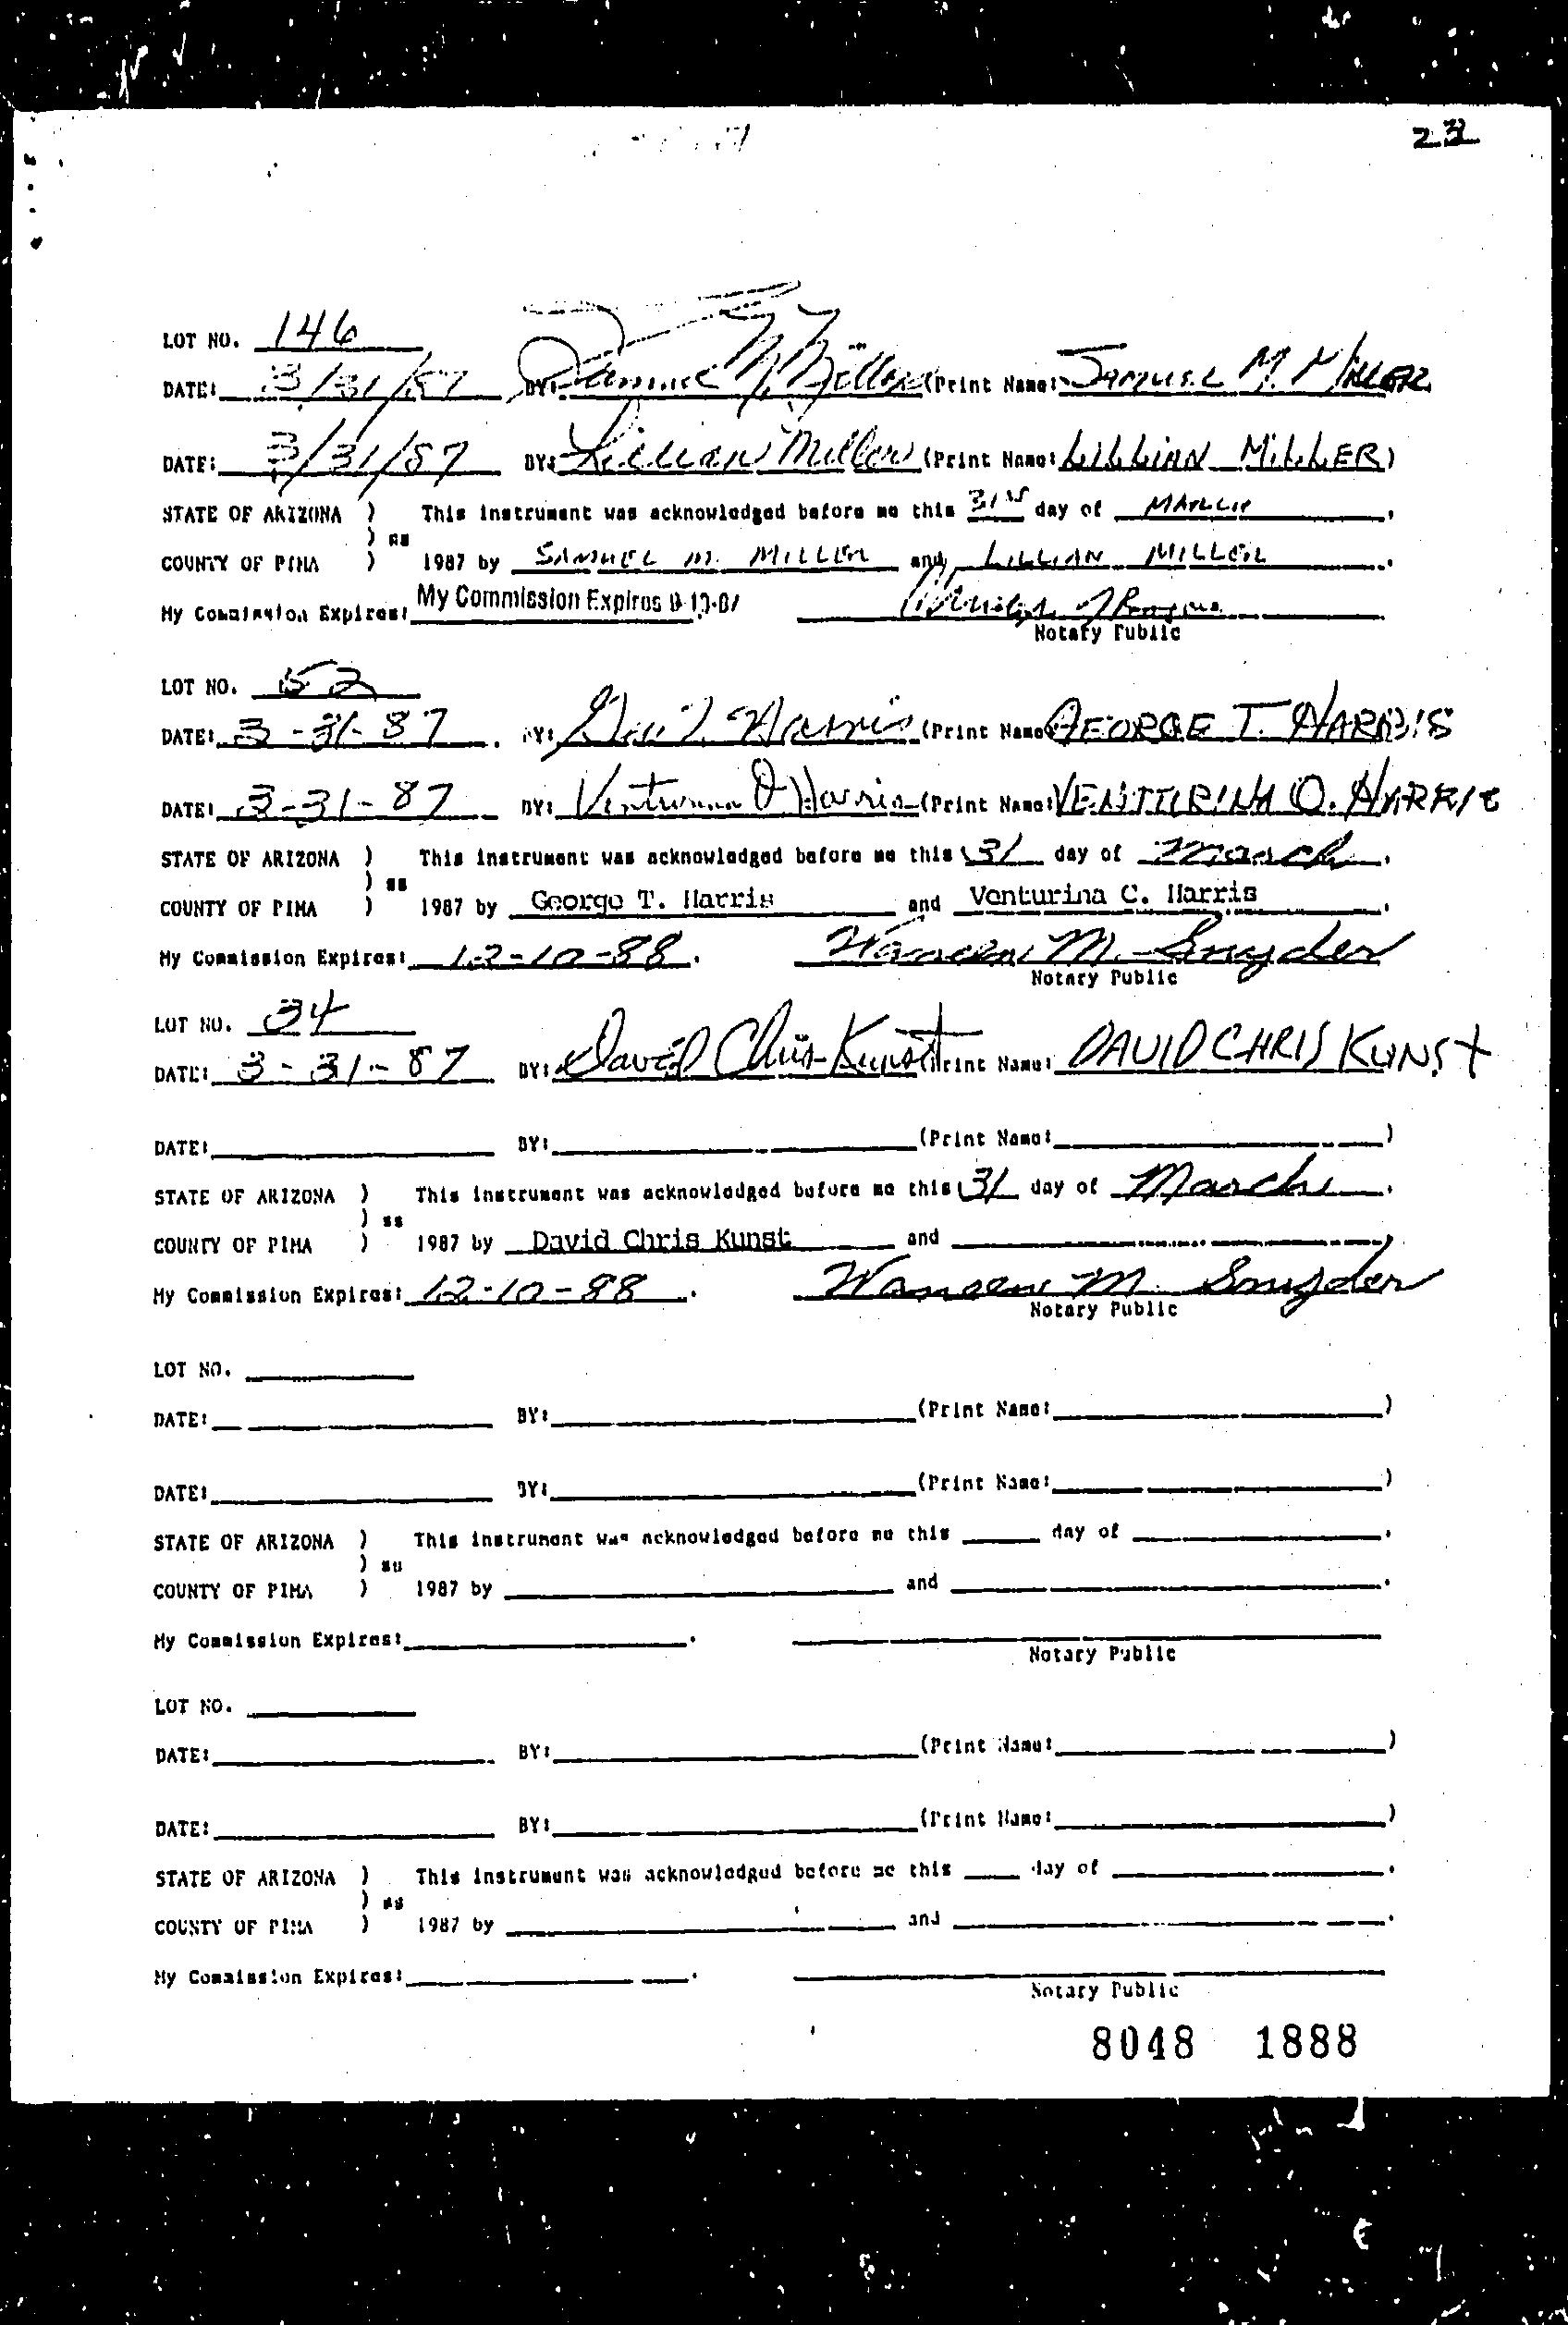 23
LOT NO. 146
DATE: 3/31/87 BY: Samuel M. Miller (Print Name: SAMUEL M. MILLER
DATE: 3/31/87 BY: Lillian Miller (Print Name: LILLIAN MILLER)
STATE OF ARIZONA ) This instrument was acknowledged before me this 31st day of MARCH.
) ss
COUNTY OF PIMA ) 1987 by SAMUEL M. MILLER and LILLIAN MILLER.
My Commission Expires: My Commission Expires
Notary Public
LOT NO. 52
DATE: 3-31-87. BY: Harris (Print Name: GEORGE T. HARRIS
DATE: 3-31-87 BY: Venturina O Harris (Print Name: VENTURINA O. HARRIS
STATE OF ARIZONA ) This instrument was acknowledged before me this 31 day of March.
) ss
COUNTY OF PIMA ) 1987 by George T. Harris and Venturina C. Harris.
My Commission Expires: 12-10-88. M. Snyder
Notary Public
LOT NO. 34
DATE: 3-31-87 BY: David Chris Kunst (Print Name: DAVID CHRIS KUNST
DATE: BY: (Print Name: )
STATE OF ARIZONA ) This instrument was acknowledged before me this 31 day of March.
) ss
COUNTY OF PIMA ) 1987 by David Chris Kunst and .
My Commission Expires: 12-10-88. M. Snyder
Notary Public
LOT NO.
DATE: BY: (Print Name: )
DATE: BY: (Print Name: )
STATE OF ARIZONA ) This instrument was acknowledged before me this day of .
) ss
COUNTY OF PIMA ) 1987 by and .
My Commission Expires: .
Notary Public
LOT NO.
DATE: BY: (Print Name: )
DATE: BY: (Print Name: )
STATE OF ARIZONA ) This instrument was acknowledged before me this day of .
) ss
COUNTY OF PIMA ) 1987 by and .
My Commission Expires: .
Notary Public
8048 1888